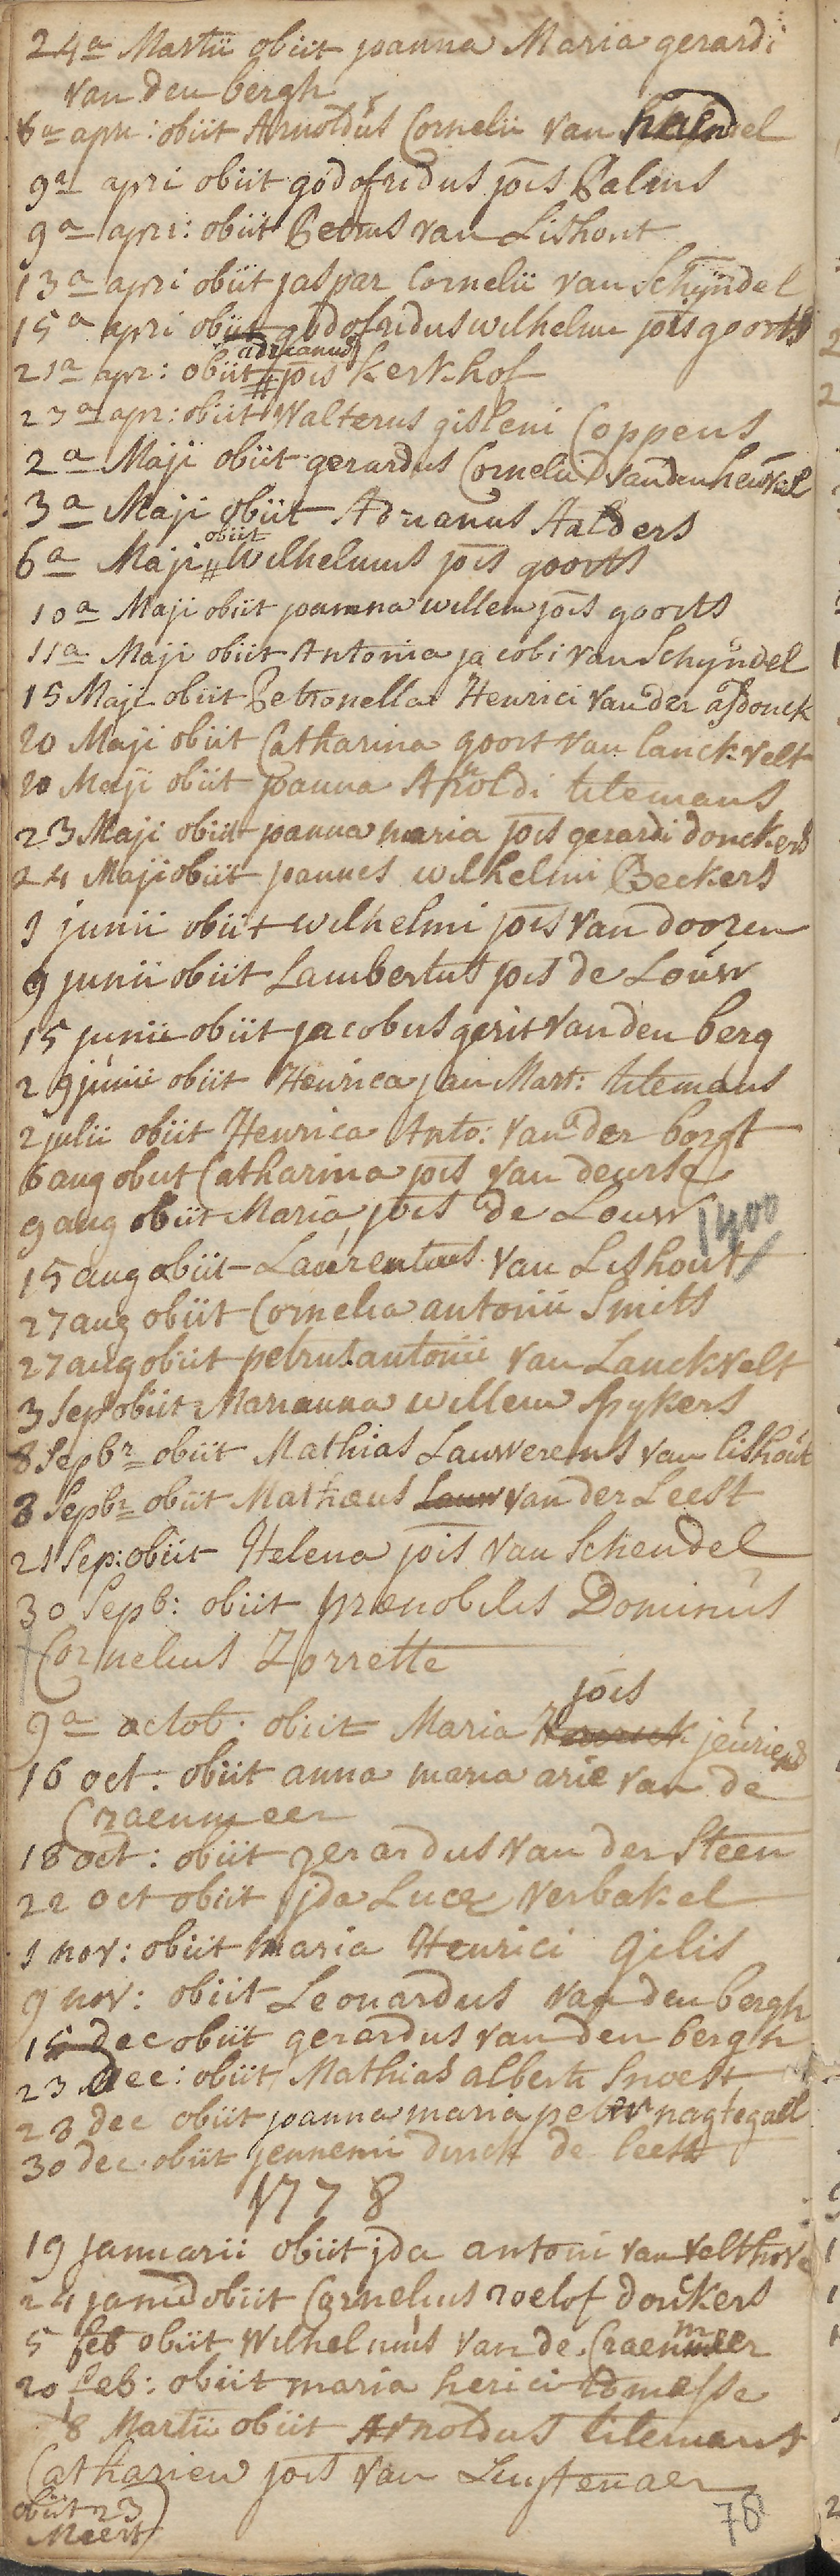 24a Martii obiit joanna Maria gerardi
van den bergh
6a apri: obiit Arnoldus Cornelii van handel
9a apri obiit godofridus jois Palms
9a apri: obiit Petrus van Lishout
13a apri obiit jaspar Cornelii van Schyndel
15a apri obiit godofridus wilhelmi jois goorts
adrianus
21a apr: obiit # jois kerkhof
23a apr: obiit Walterus gisleni Coppens
2a Maji obiit gerardus Cornelii van den heuvel
3a Maji obiit Adrianus Aalders
obiit
6a Maji # Wilhelmus jois goorts
10a Maji obiit joanna willem jois goorts
11a Maji obiit Antonia jacobi van Schyndel
15 Maji obiit Petronella Henrici van der asdonck
20 Maji obiit Catharina goort van lanckvelt
20 Maji obiit joanna Arnoldi tilemans
23 Maji obiit joanna maria jois gerardi donckers
24 Maji obiit joannes wilhelmi Beckers
1 junii obiit wilhelmi jois van dooren
9 junii obiit Lambertus jois de Louw
15 junii obiit jacobus gerit van den berg
29 junii obiit Henrica jan Mart: tilemans
2 julii obiit Henrica Anto: van der borgt
6 aug obiit Catharina jois van deurse
9 aug obiit Maria jois de Louw
1400
15 aug obiit Laurentius van Lishout
27 aug obiit Cornelia antonii Smits
27 aug obiit petrus antonii van Lanckvelt
3 Sep obiit Marianna willem Spykers
8 Sepbr obiit Mathias Lauwerens van lishout
8 Sepbr obiit Matheus Lauw van der Leest
21 Sep: obiit Helena jois van Schendel
30 Sepb: obiit prænobilis Dominus
Cornelius Zorrette
jois
9a octob: obiit Maria jeuriens
16 oct: obiit anna maria arie van de
Craenmeer
18 oct: obiit gerardus van der Steen
22 oct obiit jda Lucæ Verbakel
1 nov: obiit maria Henrici Gilis
9 nov: obiit Leonardus van den bergh
15 dec obiit gerardus van den bergh
23 dec: obiit Mathias alberti Snoeks
28 dec obiit joanna maria peter nagtegaal
30 dec obiit jennemi dirck de leest
1778
19 januarii obiit jda antoni van velthove
24 januarii obiit Cornelius roelof donkers
5 feb obiit Wilhelmus van de Craenmeer
20 feb: obiit maria herici tomasse
8 Martii obiit Arnoldus tilemans
Catharien jois van Luytenaer
obiit 23
Meert
78